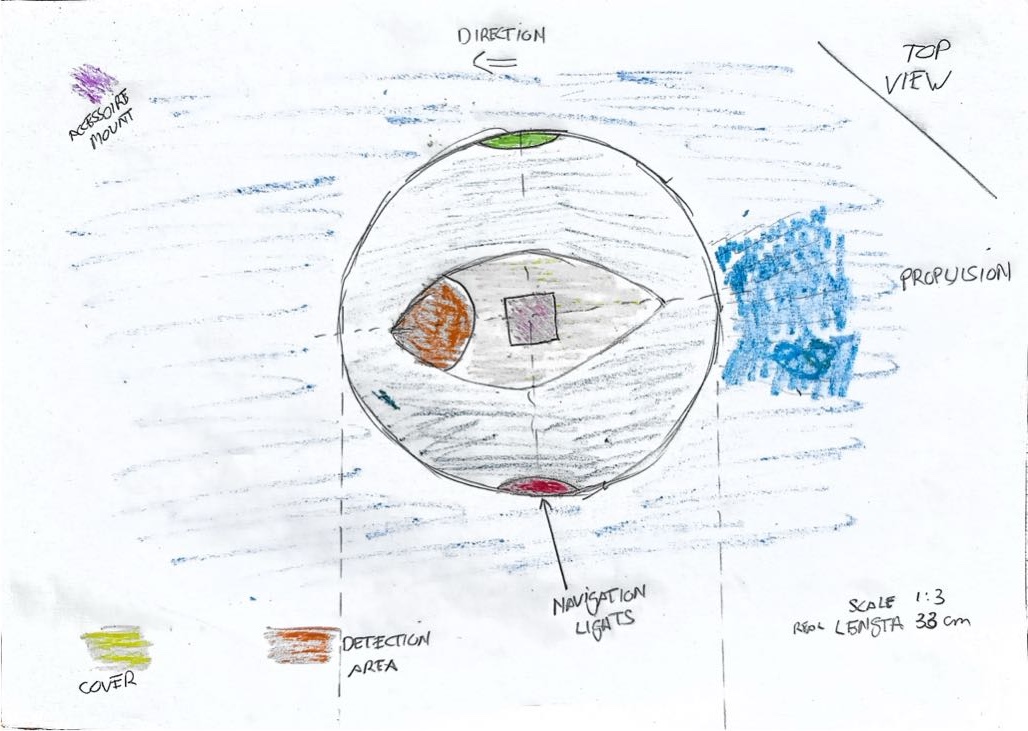 DIRECTION
TOP
VIEW
ACCESSOIRE
MOUNT
PROPULSION
NAVIGATION
LIGHTS
SCALE 1:3
REAL LENGTH 33 cm
DETECTION
AREA
COVER